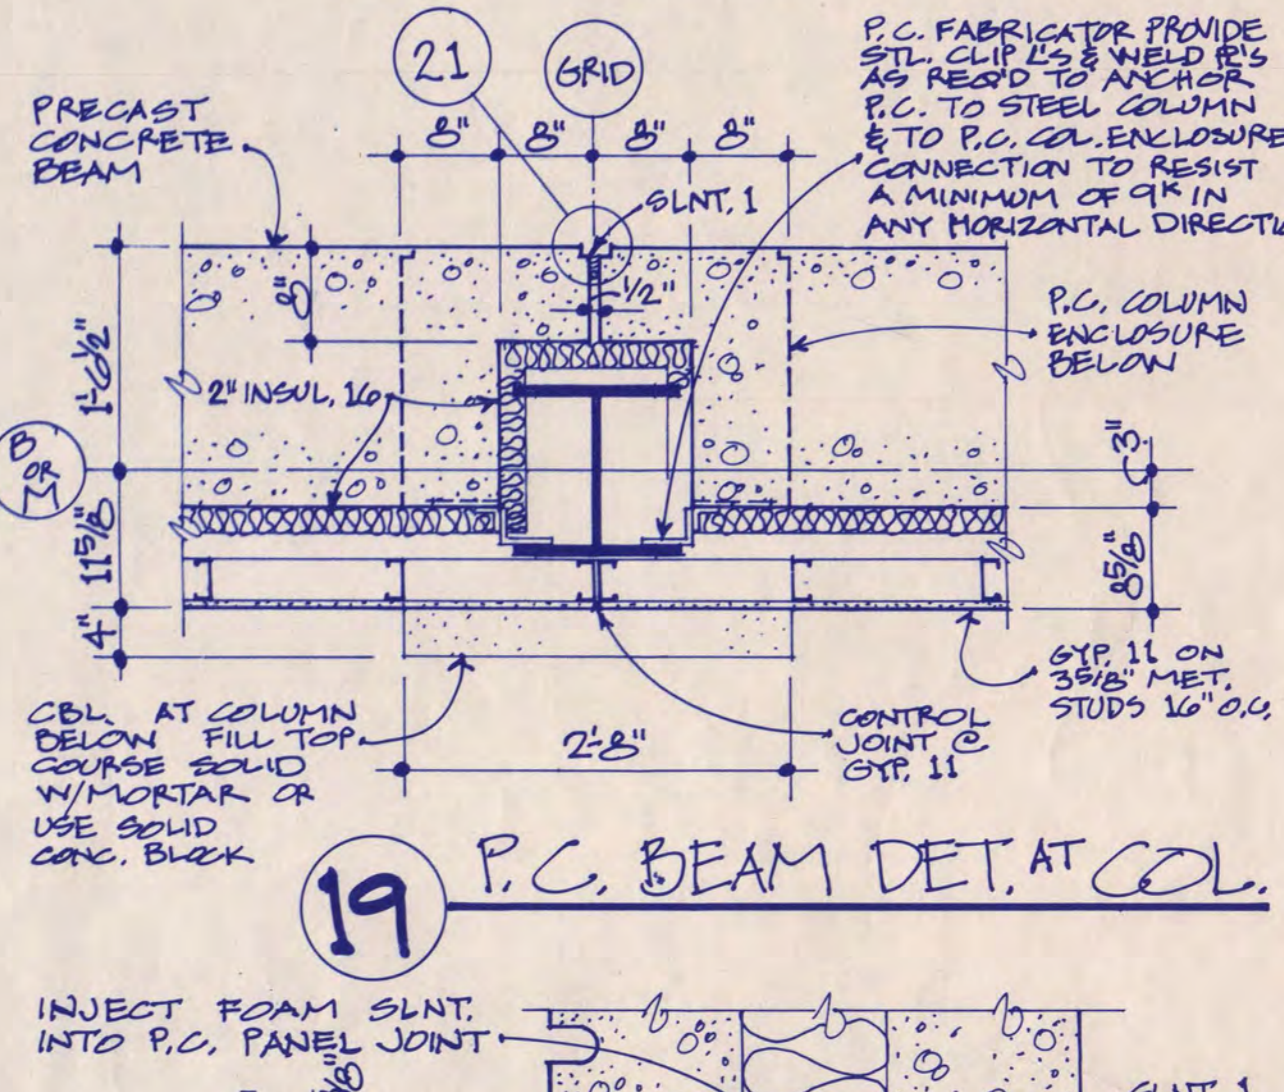 21
GRID
P.C. FABRICATOR PROVIDE
STL. CLIP L'S & WELD PL'S
AS REQ'D TO ANCHOR
P.C. TO STEEL COLUMN
& TO P.C. COL. ENCLOSURE
CONNECTION TO RESIST
A MINIMUM OF 9K IN
ANY HORIZONTAL DIRECTI
PRECAST
CONCRETE
BEAM
8" 8" 8" 8"
SLNT. 1
8"
1/2"
1'-6 1/2"
P.C. COLUMN
ENCLOSURE
BELOW
2" INSUL. 16
B
OR
M
3"
11 5/8"
8 5/8"
4"
GYP. 11 ON
3 5/8" MET.
STUDS 16" O.C.
CBL. AT COLUMN
BELOW FILL TOP
COURSE SOLID
W/MORTAR OR
USE SOLID
CONC. BLOCK
2'-8"
CONTROL
JOINT @
GYP. 11
19
P.C. BEAM DET. AT COL.
INJECT FOAM SLNT.
INTO P.C. PANEL JOINT